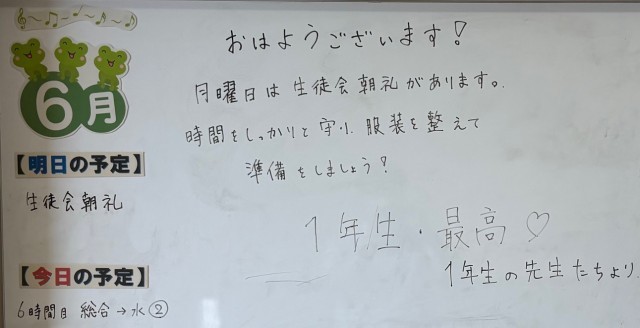 6月
【明日の予定】
生徒会朝礼
【今日の予定】
6時間目 総合→水②
おはようございます!
月曜日は生徒会朝礼があります。
時間をしっかりと守り、服装を整えて
準備をしましょう!
1年生・最高♡
1年生の先生たちより